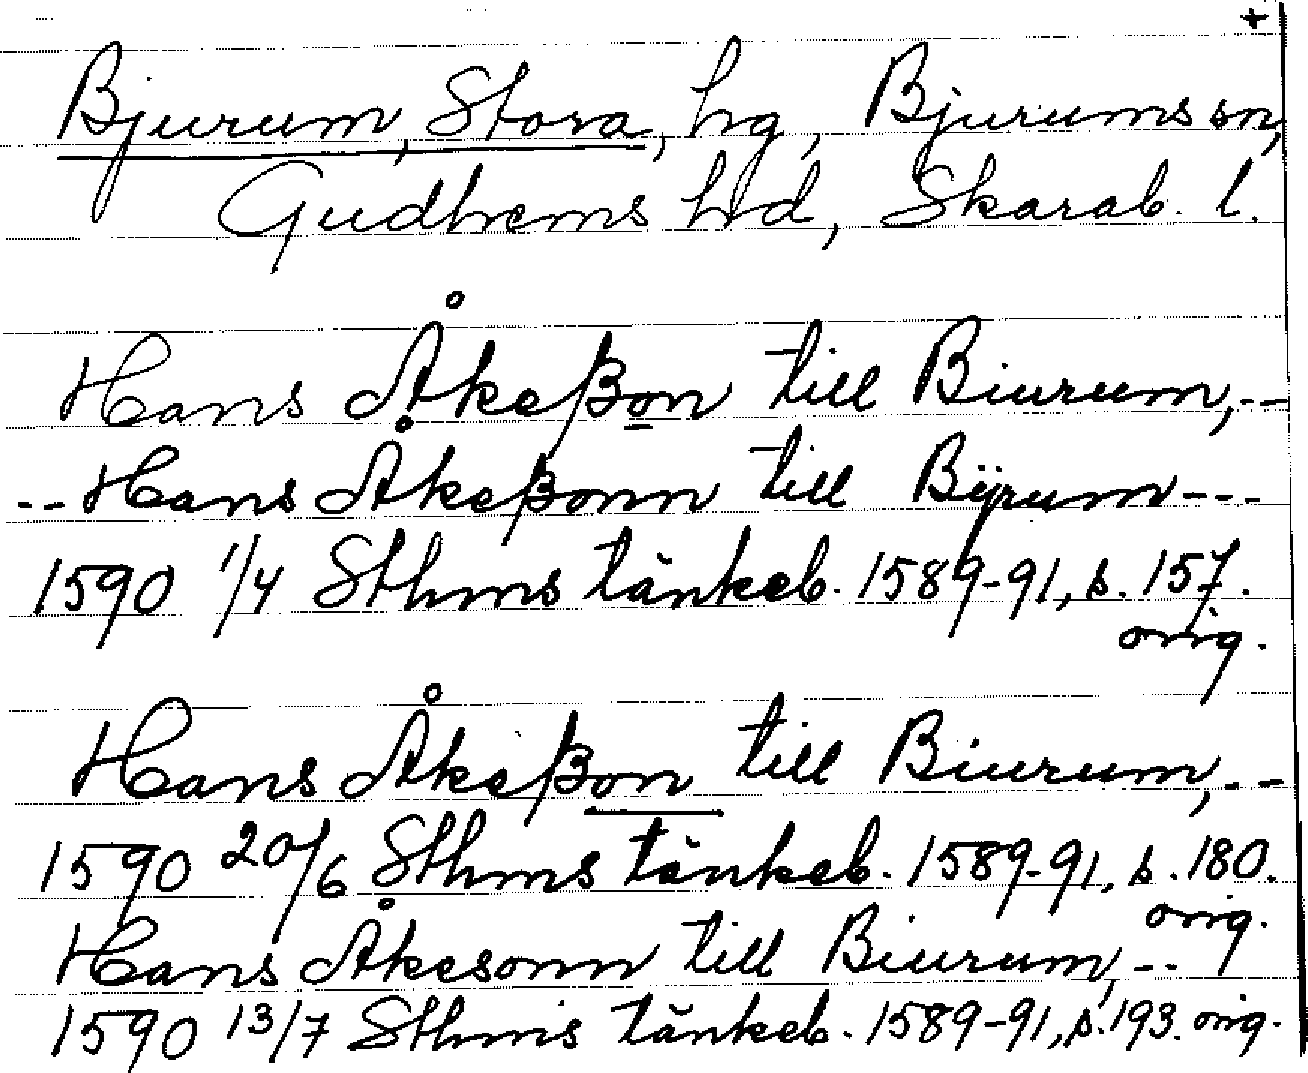 +
Bjurum, Stora, hg, Bjurums sn,
Gudhems hd, Skarab. l.
Hans Åkeßon till Biurum, --
-- Hans Åkeßonn till Bÿrum ---
1590 1/4 Sthms tänkeb. 1589-91, s. 157.
orig.
Hans Åkeßon till Biurum, --
1590 20/6 Sthms tänkeb. 1589-91, s. 180.
orig.
Hans Åkesonn till Biurum, --
1590 13/7 Sthms tänkeb. 1589-91, s. 193. orig.